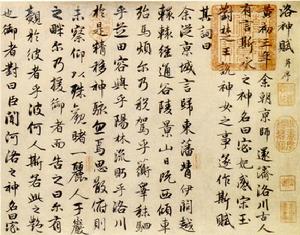 洛神賦 并序
黃初三年余朝京師還濟洛川古人
有言斯水之神名曰宓妃感宋玉
對楚王說神女之事遂作斯賦
其詞曰
余從京城言歸東藩背伊闕越
轘轅經通谷陵景山日既西傾車
殆馬煩尔乃稅駕乎蘅皋秣駟
乎芝田容與乎陽林流眄乎洛川
於是精移神駭忽焉思散俯則
未察仰以殊觀睹一麗人于巖
之畔尔乃援御者而告之曰尔有
覿於彼者乎彼何人斯若此之豔
也御者對曰臣聞河洛之神名曰宓